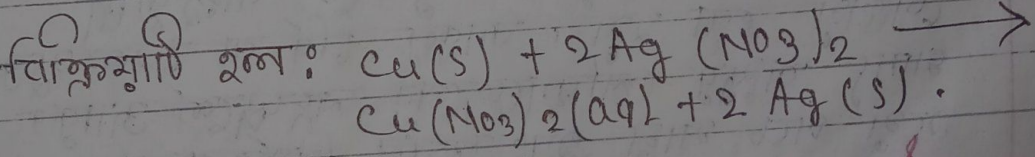 বিক্রিয়াটি হল : Cu(s) + 2Ag (NO3)2 →
Cu(NO3)2(aq) + 2 Ag (s).